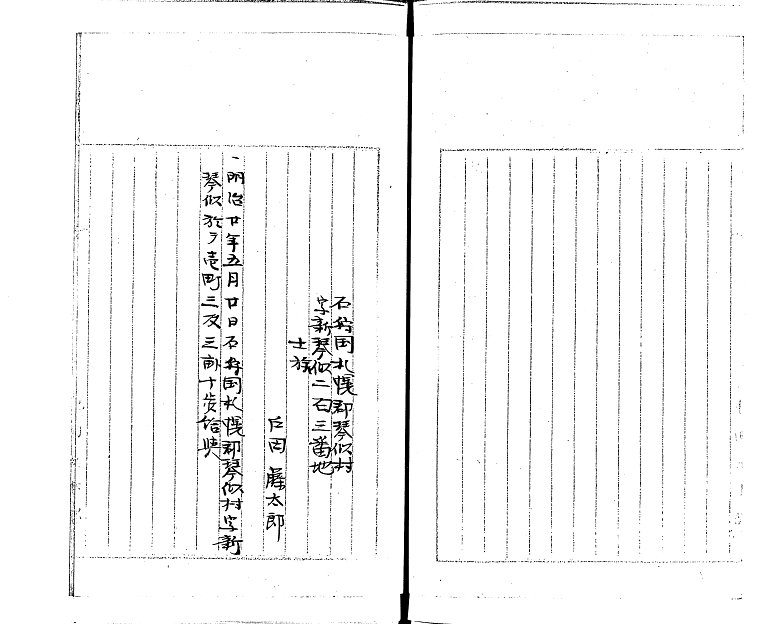 石狩国札幌郡琴似村
字新琴似二百三番地
士族
戸田藤太郎
一明治廿年五月廿日石狩国札幌郡琴似村字新
琴似於テ壱町三反三畝十歩給与